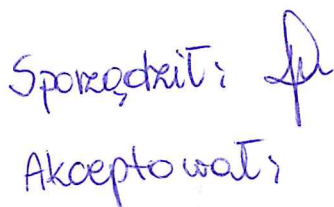 Sporządził:
Akceptował: